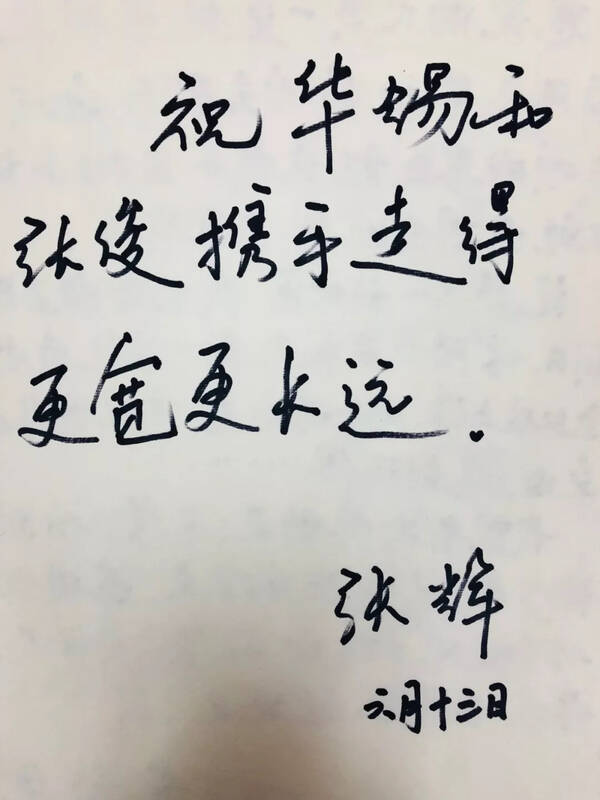 祝华 和
张俊携手走得
更宽更长远.
张辉
六月十三日